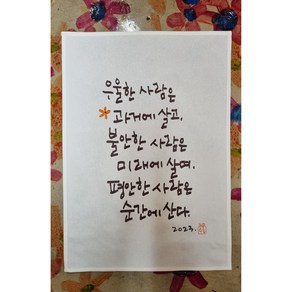 우울한 사람은
과거에 살고,
불안한 사람은
미래에 살며,
평안한 사람은
순간에 산다.
2023.